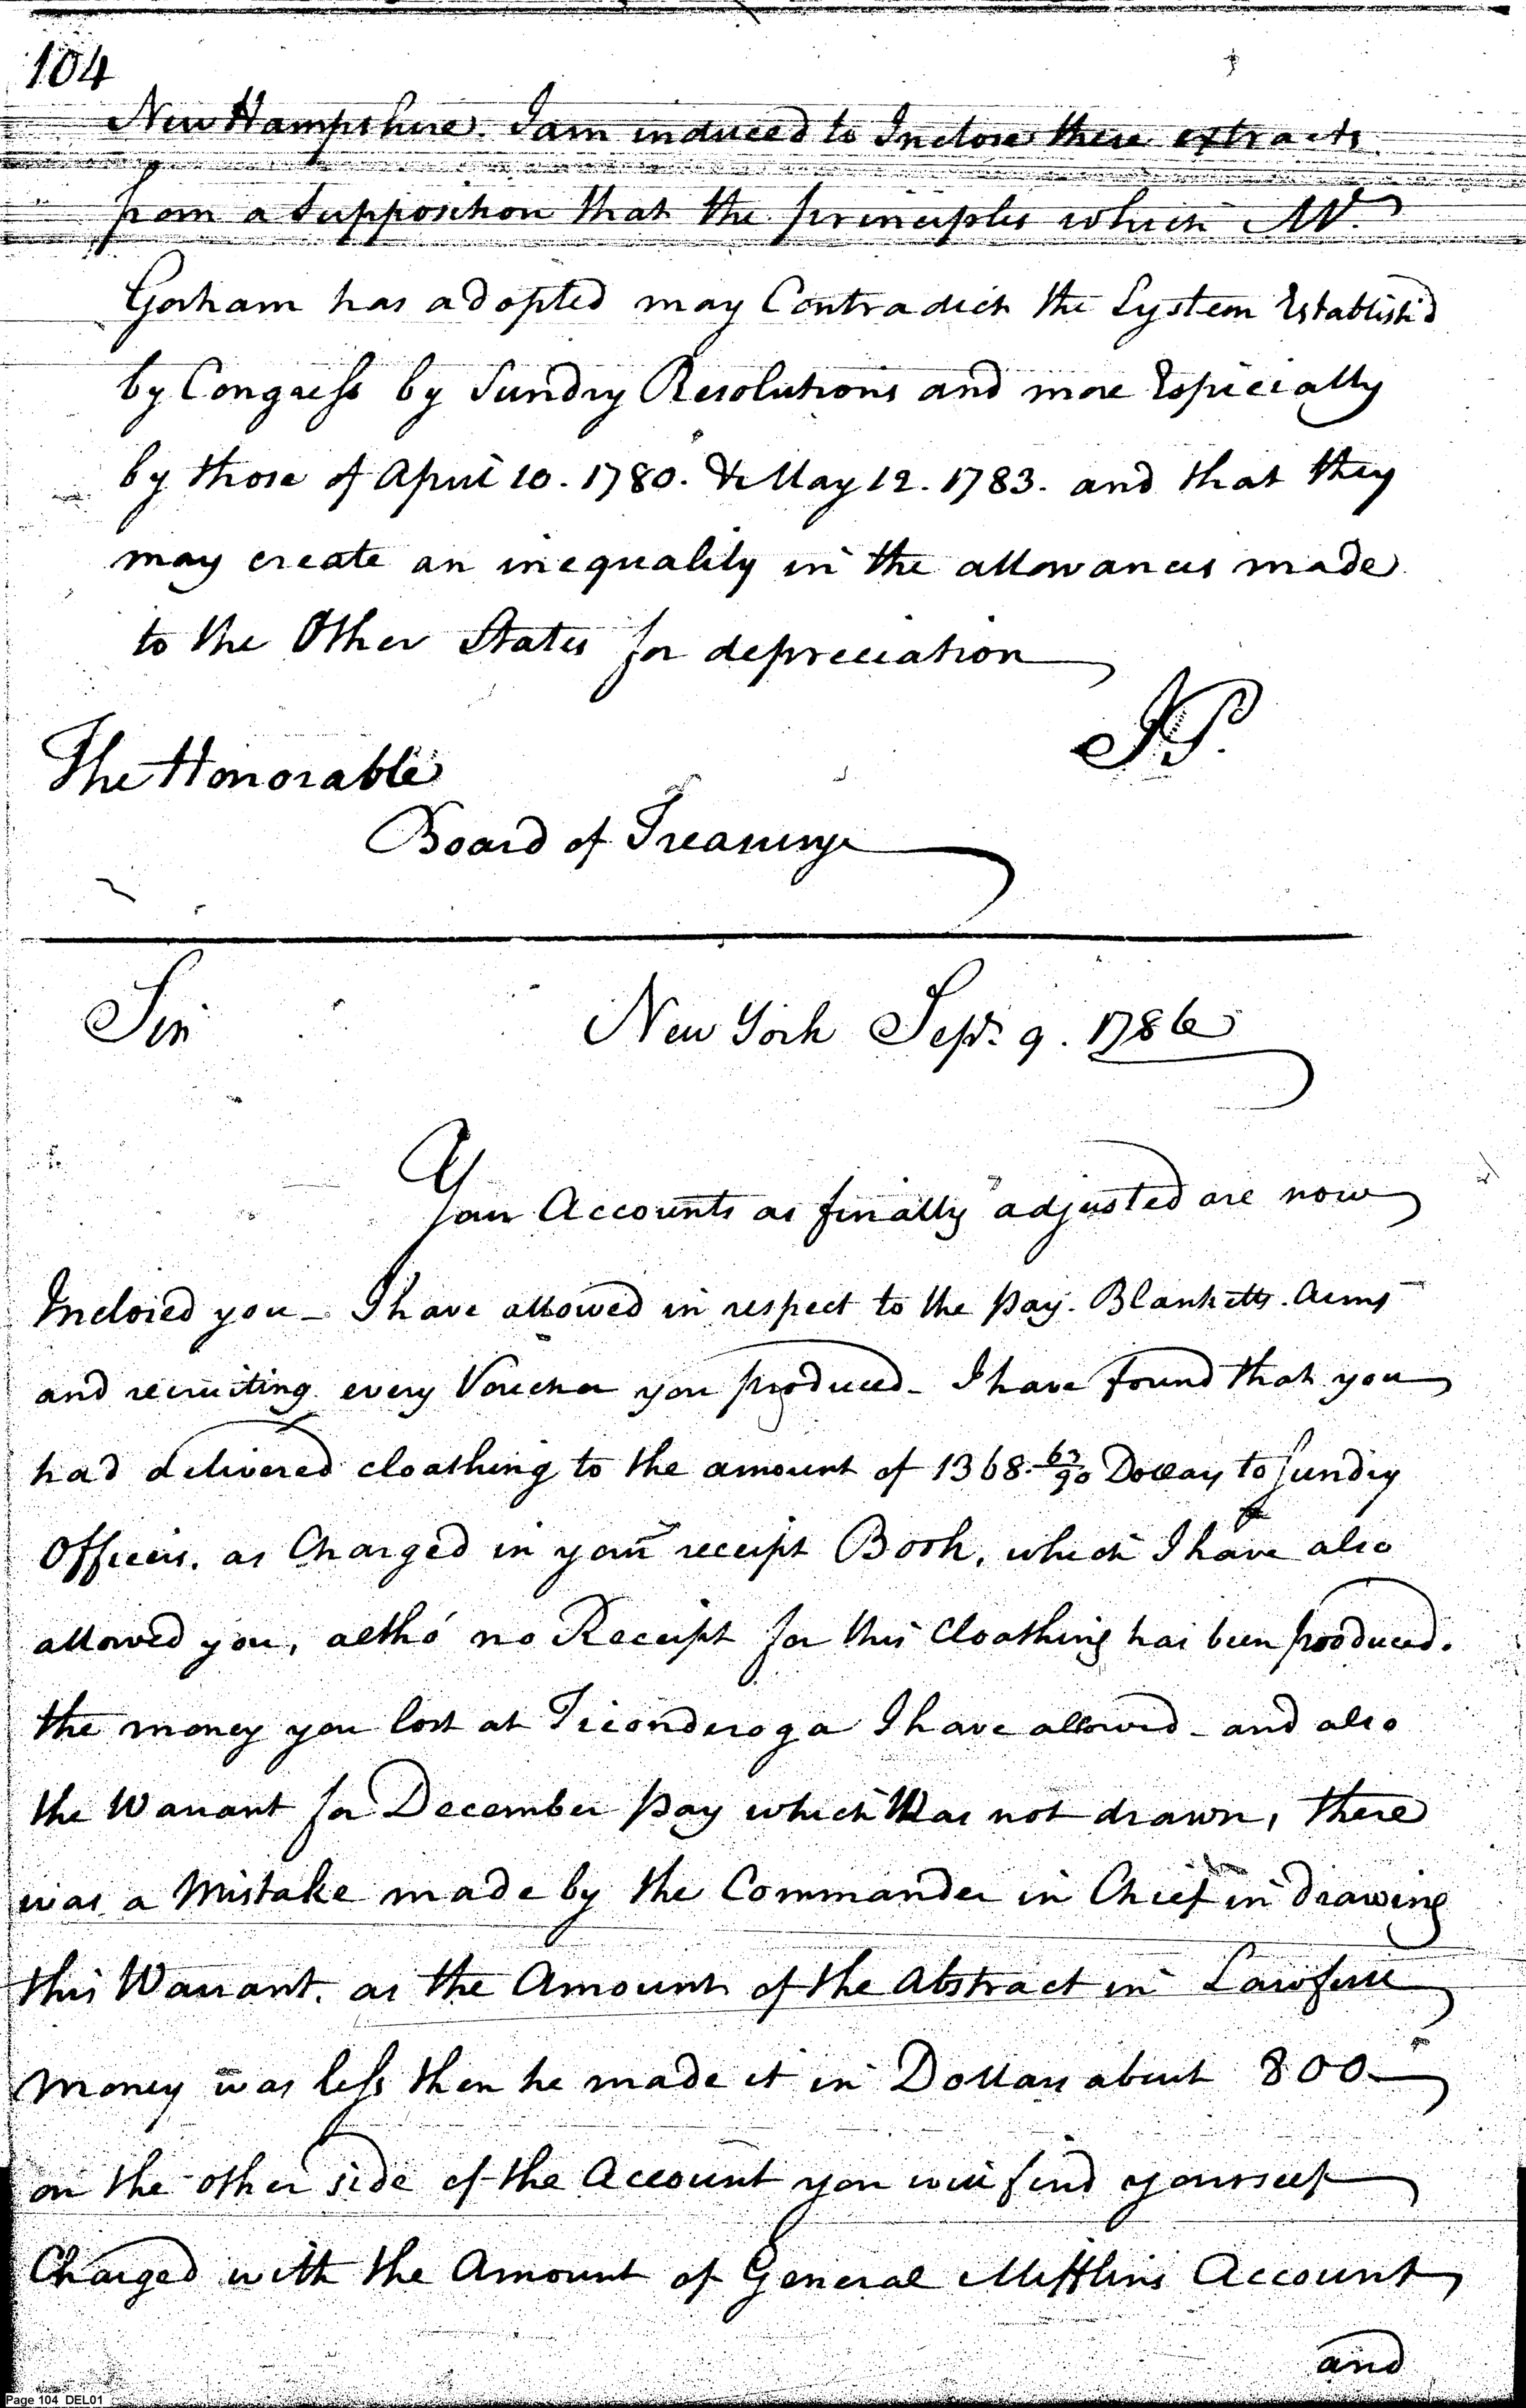 104
New Hampshire. I am induced to Inclose these extracts
from a Supposition that the principles which Mr.
Gorham has adopted may Contradict the System Establish'd
by Congress by Sundry Resolutions and more Especially
by those of April 10. 1780. & May 12. 1783. and that they
may create an inequality in the allowances made
to the Other States for depreciation
JP.
The Honorable
Board of Treasury
Sir
New York Sept. 9. 1786
Your Accounts as finally adjusted are now
Inclosed you - I have allowed in respect to the pay. Blanketts. Arms
and recruiting every Voucher you produced - I have found that you
had delivered cloathing to the amount of 1368. 63/90 Dollars to Sundry
Officers. as Charged in your receipt Book, which I have also
allowed you, altho' no Receipt for this Cloathing has been produced.
the money you lost at Ticonderoga I have allowed - and also
the Warrant for December pay which Was not drawn, there
was a Mistake made by the Commander in Chief in drawing
this Warrant. as the Amount of the Abstract in Lawfull
money was less then he made it in Dollars about 800
on the other side of the Account you will find yourself
Charged with the Amount of General Mifflins Account
and
Page 104 DEL01